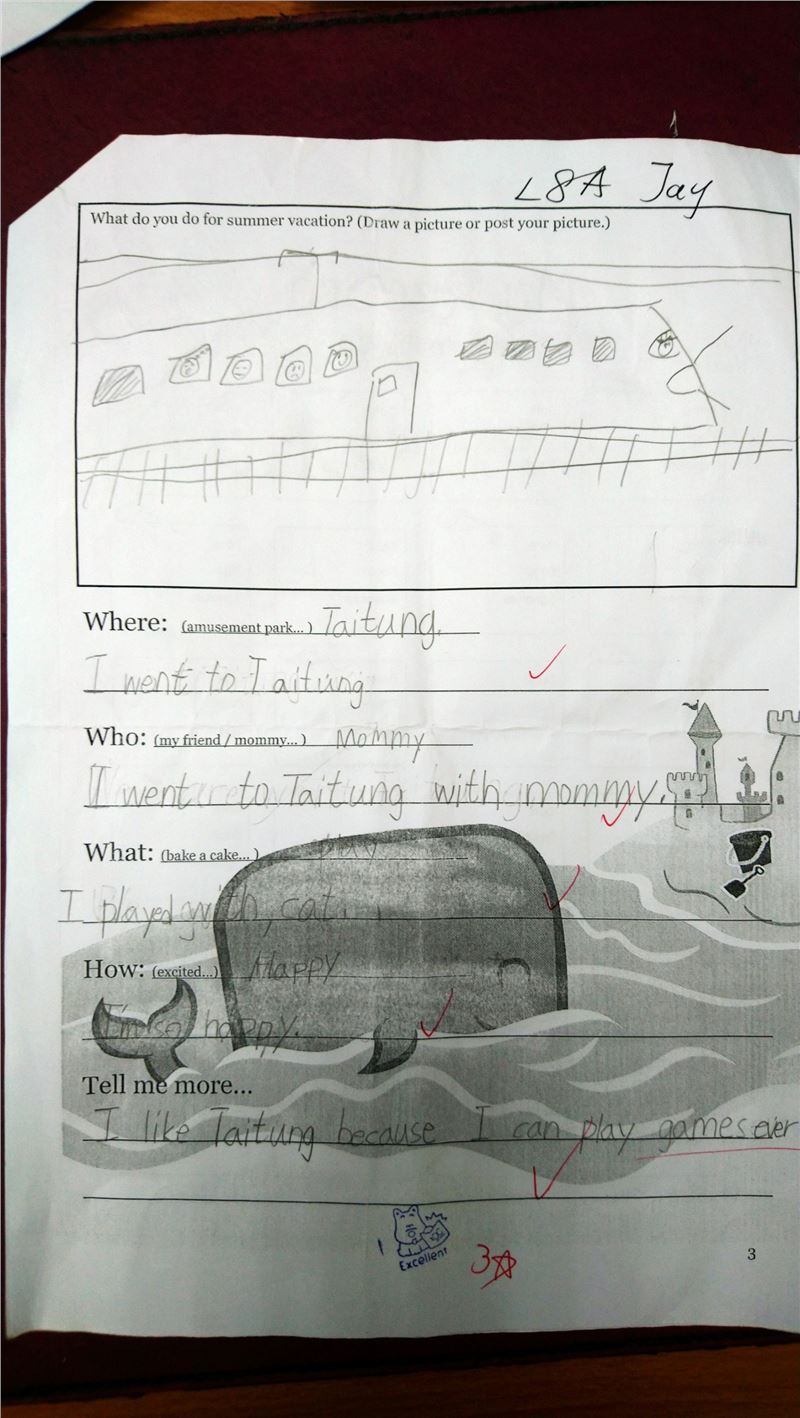 L8A Jay
What do you do for summer vacation? (Draw a picture or post your picture.)
Where: (amusement park... ) Taitung.
I went to Taitung
Who: (my friend / mommy... ) Mommy
I went to Taitung with mommy.
What: (bake a cake... ) play
I played with cat.
How: (excited...) Happy
I'm so happy.
Tell me more...
I like Taitung because I can play games ever
Excellent
3
3